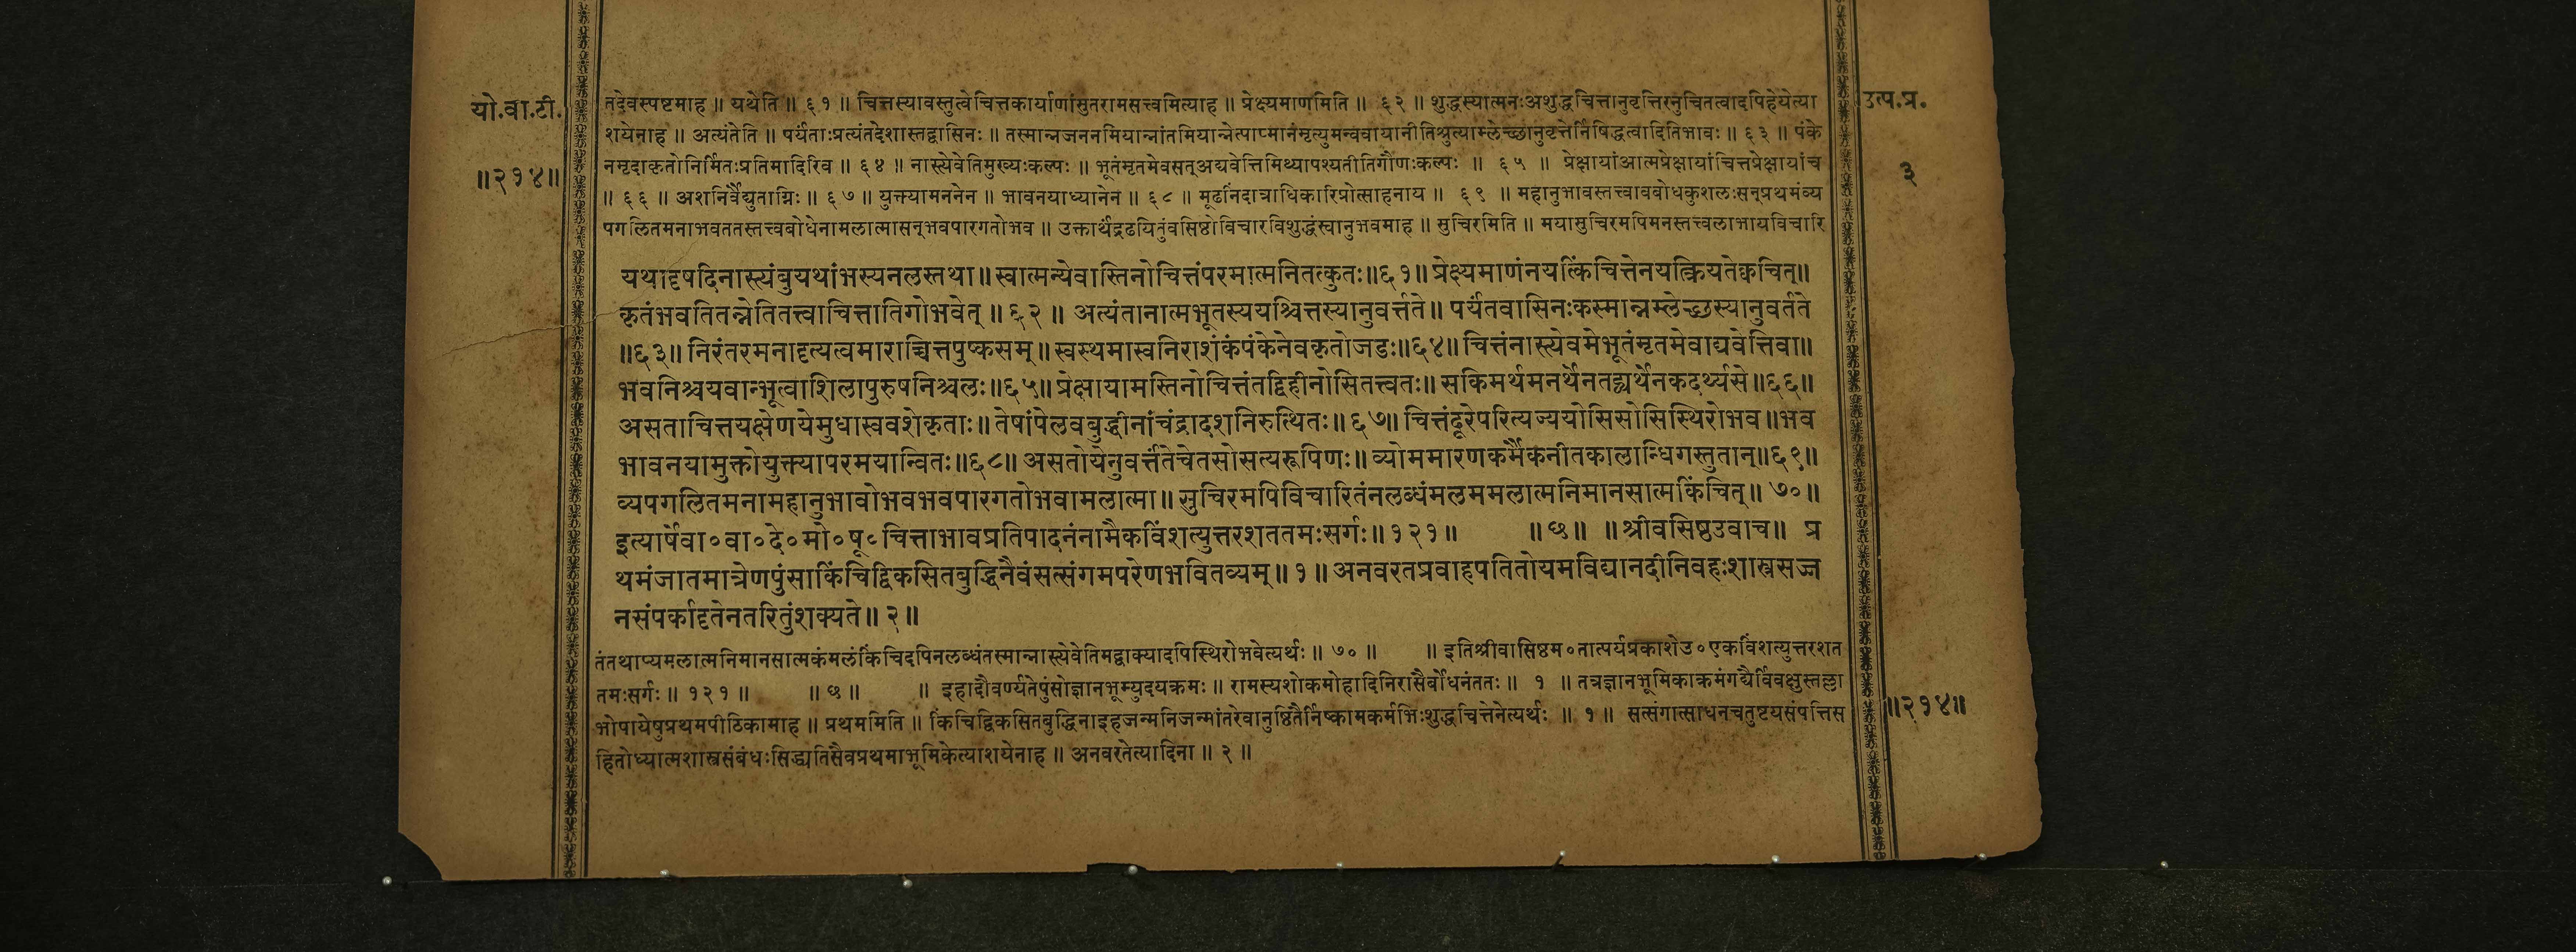 यो.वा.टी.
॥२१४॥
उत्प.प्र.
३
तदेवस्पष्टमाह ॥ यथेति ॥ ६१ ॥ चित्तस्यावस्तुत्वेचित्तकार्याणांसुतरामसत्त्वमित्याह ॥ प्रेक्ष्यमाणमिति ॥ ६२ ॥ शुद्धस्यात्मनःअशुद्धचित्तानुवृत्तिरनुचितत्वादपिहेयेत्या
शयेनाह ॥ अत्यंतेति ॥ पर्यंताःप्रत्यंतदेशास्तद्वासिनः ॥ तस्मान्नजननमियान्नांतमियान्नेत्पाप्मानंमृत्युमन्ववायानीतिश्रुत्याम्लेच्छानुवृत्तेर्निषिद्धत्वादितिभावः ॥ ६३ ॥ पंके
नमृदाकृतोनिर्मितःप्रतिमादिरिव ॥ ६४ ॥ नास्त्येवेतिमुख्यःकल्पः ॥ भूतंमृतमेवसत्अद्यवेत्तिमिथ्यापश्यतीतिगौणःकल्पः ॥ ६५ ॥ प्रेक्षायांआत्मप्रेक्षायांचित्तप्रेक्षायांच
॥ ६६ ॥ अशनिर्वैद्युताग्निः ॥ ६७ ॥ युक्त्यामननेन ॥ भावनयाध्यानेन ॥ ६८ ॥ मूढनिंदात्राधिकारिप्रोत्साहनाय ॥ ६९ ॥ महानुभावस्तत्त्वावबोधकुशलःसन्प्रथमंव्य
पगलितमनाभवततस्तत्त्वबोधेनामलात्मासन्भवपारगतोभव ॥ उक्तार्थंद्रढयितुंवसिष्ठोविचारविशुद्धंस्वानुभवमाह ॥ सुचिरमिति ॥ मयासुचिरमपिमनस्तत्त्वलाभायविचारि
यथादृषदिनास्त्यंबुयथांभस्यनलस्तथा॥ स्वात्मन्येवास्तिनोचित्तंपरमात्मनितत्कुतः॥६१॥ प्रेक्ष्यमाणंनयत्किंचित्तेनयत्क्रियतेक्वचित्॥
कृतंभवतितन्नेतितत्त्वाचित्तातिगोभवेत् ॥ ६२ ॥ अत्यंतानात्मभूतस्ययश्चित्तस्यानुवर्त्तते॥ पर्यंतवासिनःकस्मान्नम्लेच्छस्यानुवर्तते
॥६३॥ निरंतरमनादृत्यत्वमाराच्चित्तपुष्कसम्॥ स्वस्थमास्वनिराशंकंपंकेनेवकृतोजडः॥६४॥ चित्तंनास्त्येवमेभूतंमृतमेवाद्यवेत्तिवा॥
भवनिश्चयवान्भूत्वाशिलापुरुषनिश्चलः॥६५॥ प्रेक्षायामस्तिनोचित्तंतद्विहीनोसितत्त्वतः॥ सकिमर्थमनर्थेनतद्व्यर्थेनकदर्थ्यसे॥६६॥
असताचित्तयक्षेणयेमुधास्ववशेकृताः॥ तेषांपेलवबुद्धीनांचंद्रादशनिरुत्थितः॥ ६७॥ चित्तंदूरेपरित्यज्ययोसिसोसिस्थिरोभव ॥भव
भावनयामुक्तोयुक्त्यापरमयान्वितः॥६८॥ असतोयेनुवर्त्ततेचेतसोसत्यरूपिणः॥ व्योममारणकर्मैकनीतकालान्धिगस्तुतान्॥६९॥
व्यपगलितमनामहानुभावोभवभवपारगतोभवामलात्मा॥ सुचिरमपिविचारितंनलब्धंमलममलात्मनिमानसात्मकिंचित्॥ ७०॥
इत्यार्षेवा०वा०दे०मो०षू०चित्ताभावप्रतिपादनंनामैकविंशत्युत्तरशततमःसर्गः॥१२१॥ ॥ छ॥ ॥श्रीवसिष्ठउवाच॥ प्र
थमंजातमात्रेणपुंसाकिंचिद्विकसितबुद्धिनैवंसत्संगमपरेणभवितव्यम्॥ १॥ अनवरतप्रवाहपतितोयमविद्यानदीनिवहःशास्त्रसज्ज
नसंपर्कादृतेनतरितुंशक्यते॥ २॥
तंतथाप्यमलात्मनिमानसात्मकंमलंकिंचिदपिनलब्धंतस्मान्नास्त्येवेतिमद्वाक्यादपिस्थिरोभवेत्यर्थः ॥ ७० ॥ ॥ इतिश्रीवासिष्ठम०तात्पर्यप्रकाशेउ०एकविंशत्युत्तरशत
तमःसर्गः ॥ १२१ ॥ ॥ छ ॥ ॥ इहादौवर्ण्यतेपुंसोज्ञानभूम्युदयक्रमः ॥ रामस्यशोकमोहादिनिरासैर्बोधनंततः ॥ १ ॥ तत्रज्ञानभूमिकाक्रमंगद्यैर्विवक्षुस्तल्ला
भोपायेषुप्रथमपीठिकामाह ॥ प्रथममिति ॥ किंचिद्विकसितबुद्धिनाइहजन्मनिजन्मांतरेवानुष्ठितैर्निष्कामकर्मभिःशुद्धचित्तेनेत्यर्थः ॥ १ ॥ सत्संगात्साधनचतुष्टयसंपत्तिस
हितोध्यात्मशास्त्रसंबंधःसिद्ध्यतिसैवप्रथमाभूमिकेत्याशयेनाह ॥ अनवरतेत्यादिना ॥ २ ॥
॥२१४॥